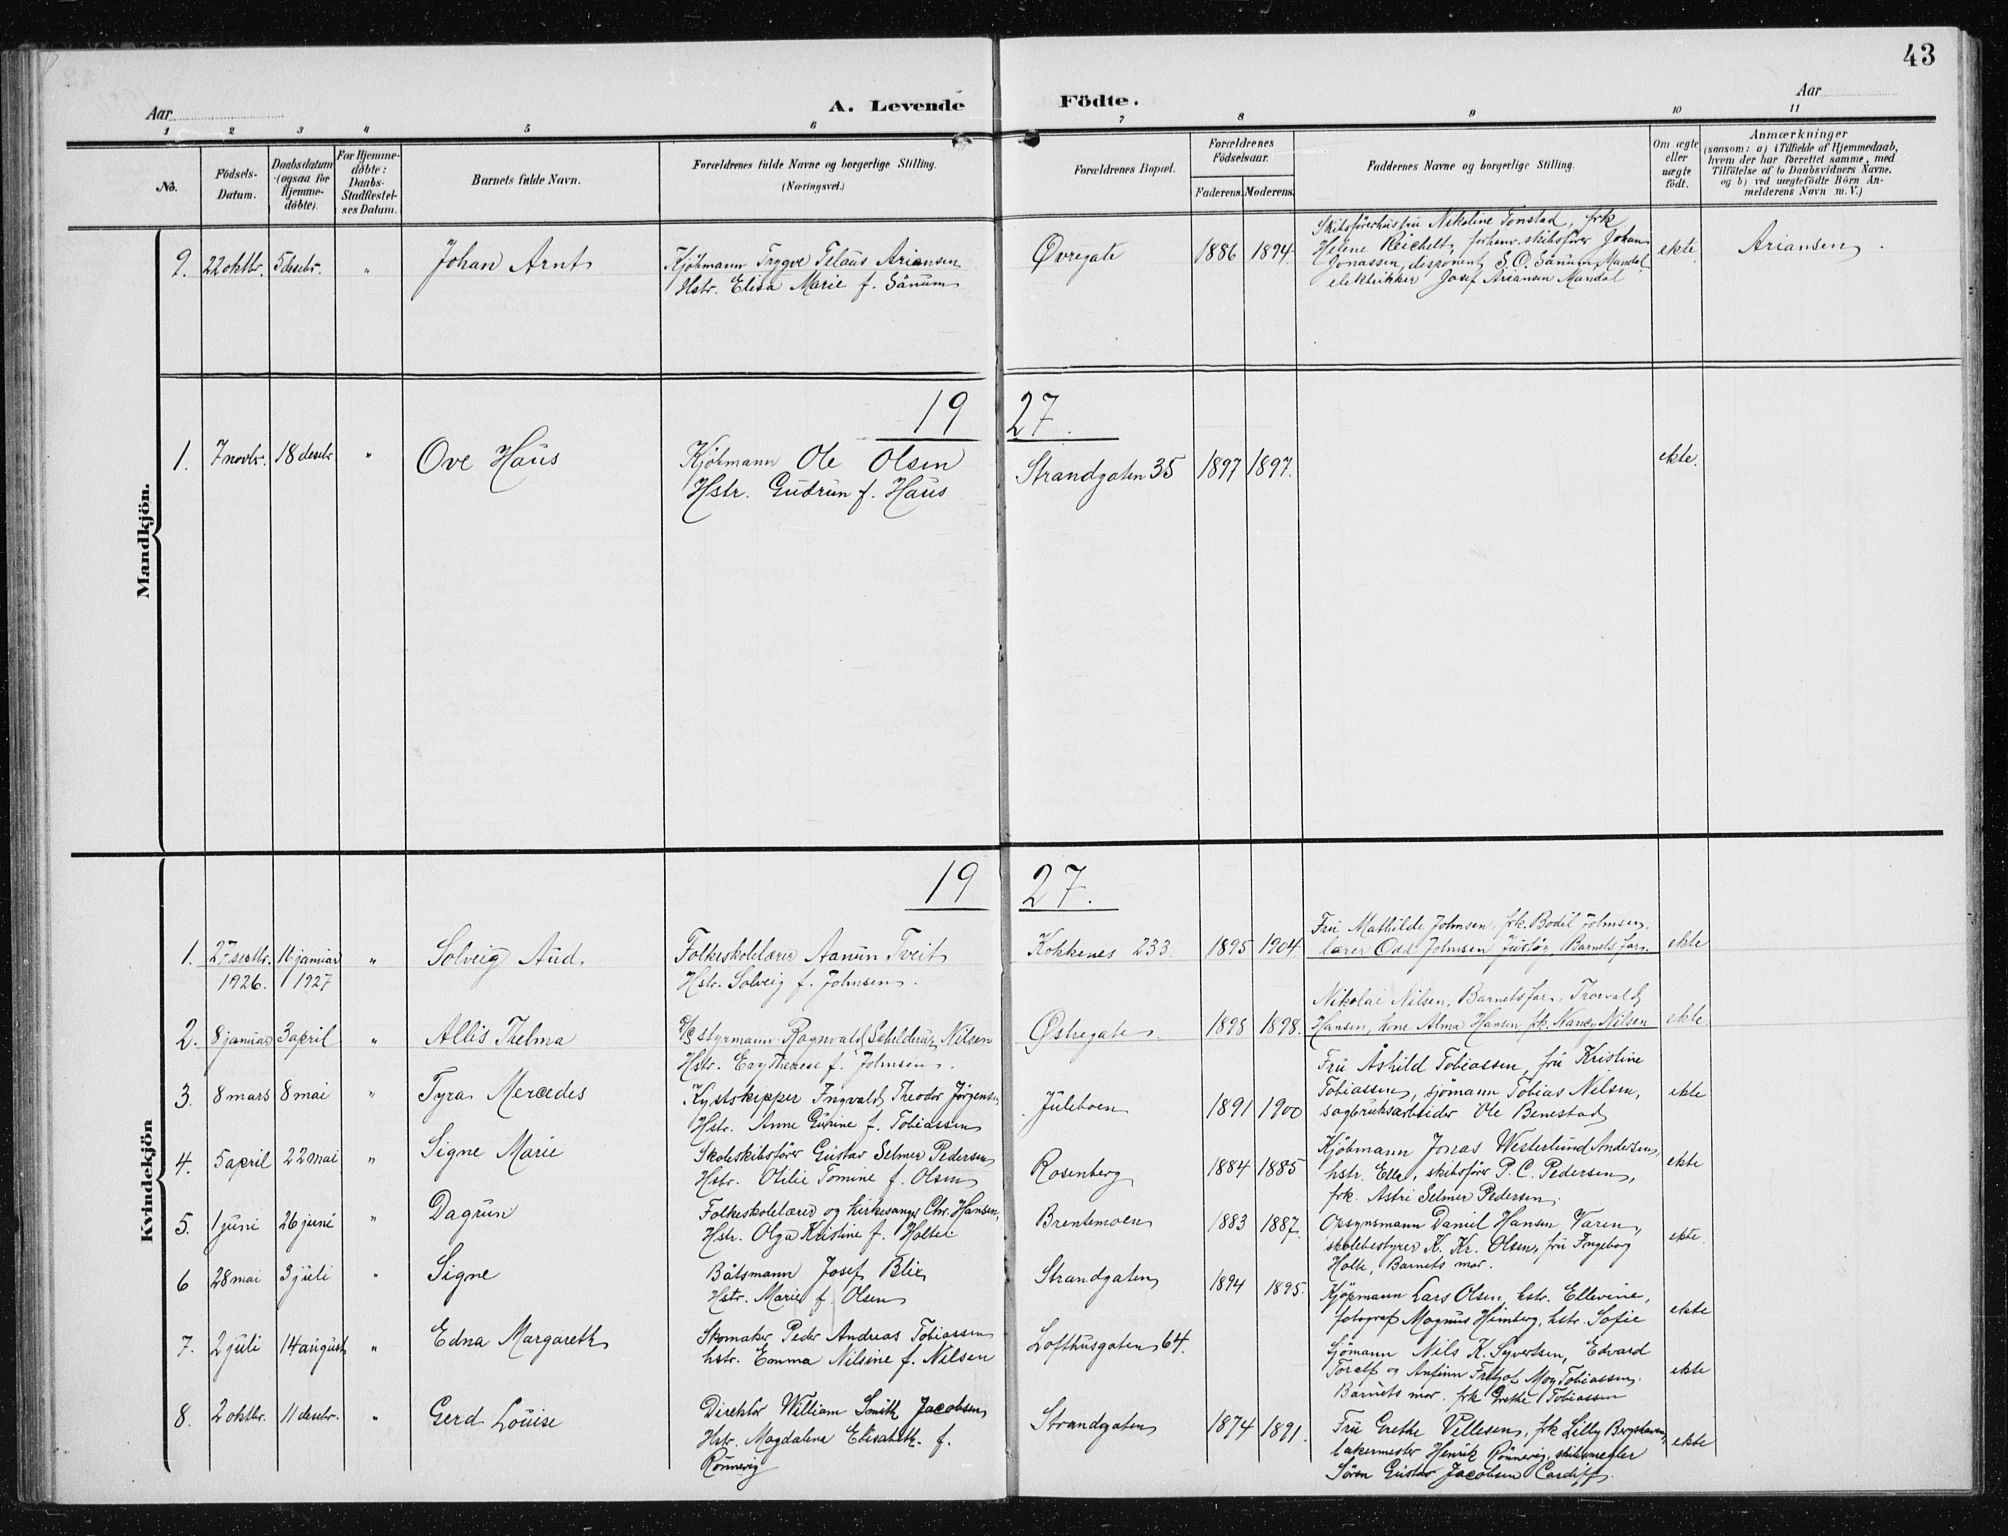 43
Aar
A. Levende Födte.
Aar
1 2 3 4 5 6 7 8 9 10 11
No.
Födsels-Datum.
Daabsdatum (ogsaa for Hjemme-döbte).
For Hjemme-döbte: Daabs-Stadfæstel-ses Datum.
Barnets fulde Navn.
Forældrenes fulde Navne og borgerlige Stilling. (Næringsvei.)
Forældrenes Bopæl.
Forældrenes Födselsaar.
Faderens. Moderens.
Faddernes Navne og borgerlige Stilling.
Om ægte eller uægte födt.
Anmærkninger (saasom: a) i Tilfælde af Hjemmedaab, hvem der har forrettet samme, med Tilföielse af to Daabsvidners Navne, og b) ved uægtefödte Börn An-melderens Navn m. V.)
Mandkjön.
9. 22 oktbr. 5 desebr. " Johan Arnt
Kjöbmann Trygve Telaus Ariansen
Hstr. Elisa Marie f. Sånum
Øvregate 1886 1894
Skibsförerhustru Nikoline Tonstad, frk
Helene Reichelt, forhenv. skibsförer Johan
Jonassen, disponent S. O. Sånum, Mandal,
elektrikker Josef Ariansen Mandal
ekte. Ariansen.
19 27.
1. 7 novbr. 18 desebr " Ove Haus
Kjöbmann Ole Olsen
Hstr. Gudrun f. Haus
Strandgaten 35 1897 1897. ekte.
Kvindekjön
19 27.
1. 27 septbr. 1926. 16 januar 1927 " Solveig Aud.
Folkeskolelærer Aanun Tveit
Hstr. Solveig f. Johnsen.
Kokkenes 233. 1895 1904
Fru Mathilde Johnsen, frk. Bodil Johnsen,
lærer Odd Johnsen Justöy, Barnets far.
ekte
2. 8 januar 3 april " Allis Thelma
styrmann Ragnvald Schelderup Nilsen
Hstr. Therese f. Johnsen.
Østregate. 1898 1898.
Nikolai Nilsen, Barnets far, Thorvald
Hansen, hone Alma Hansen, frk. Nancy Nilsen
ekte
3. 8 mars 8 mai " Tyra Mercedes
Kystskipper Ingvald Theodor Jørgensen,
Hstr. Anne Gurine f. Tobiassen
Juleboen 1891 1900
Fru Åshild Tobiassen, fru Kristine
Tobiassen, sjömann Tobias Nilsen,
sagbruksarbeider Ole Benestad
ekte
4. 5 april 22 mai " Signe Marie
Skoleskibsförer Gustav Selmer Pedersen
Hstr. Otilie Tomine f. Olsen
Rosenberg 1884 1885
Kjöbmann Jonas Westerlund Andersen,
hstr. Ella, skibsförer P. C. Pedersen,
frk. Astri Selmer Pedersen.
ekte
5. 1 juni 26 juni " Dagrun
Folkeskolelærer og kirkesanger Chr. Hansen,
Hstr. Olga Kristine f. Holte.
Brentemoen 1883 1887.
Opsynsmann Daniel Hansen Varen,
skolebestyrer K. Kr. Olsen, fru Ingeborg
Holte, Barnets mor.
ekte.
6 28 mai 3 juli " Signe
Båtsmann Josef Blix
Hstr. Marie f. Olsen
Strandgaten 1894 1895.
Kjöpmann Lars Olsen, hstr. Ellevine,
fotograf Magnus Heimberg, hstr. Sofie
ekte
7. 2 juli 14 august " Edna Margareth
Skomaker Peder Andreas Tobiassen
hstr. Emma Nilsine f. Nilsen
Lofthusgaten 64.
Sjömann Nils K. Syvertsen, Edvard
Toralf og Anfinn Fritjof Moy Tobiassen,
Barnets mor, frk Grethe Tobiassen
ekte
8. 2 oktbr. 11 desebr. " Gerd Louise
Direktör William Smith Jacobsen
Hstr. Magdalena Elisabeth f.
Rönnevig
Strandgaten 1874 1891.
Fru Grethe Villesen, frk Lilly Bryshaven,
bakermester Henrik Rönnevig, skibsmegler
Sören Gustav Jacobsen Cardiff.
ekte